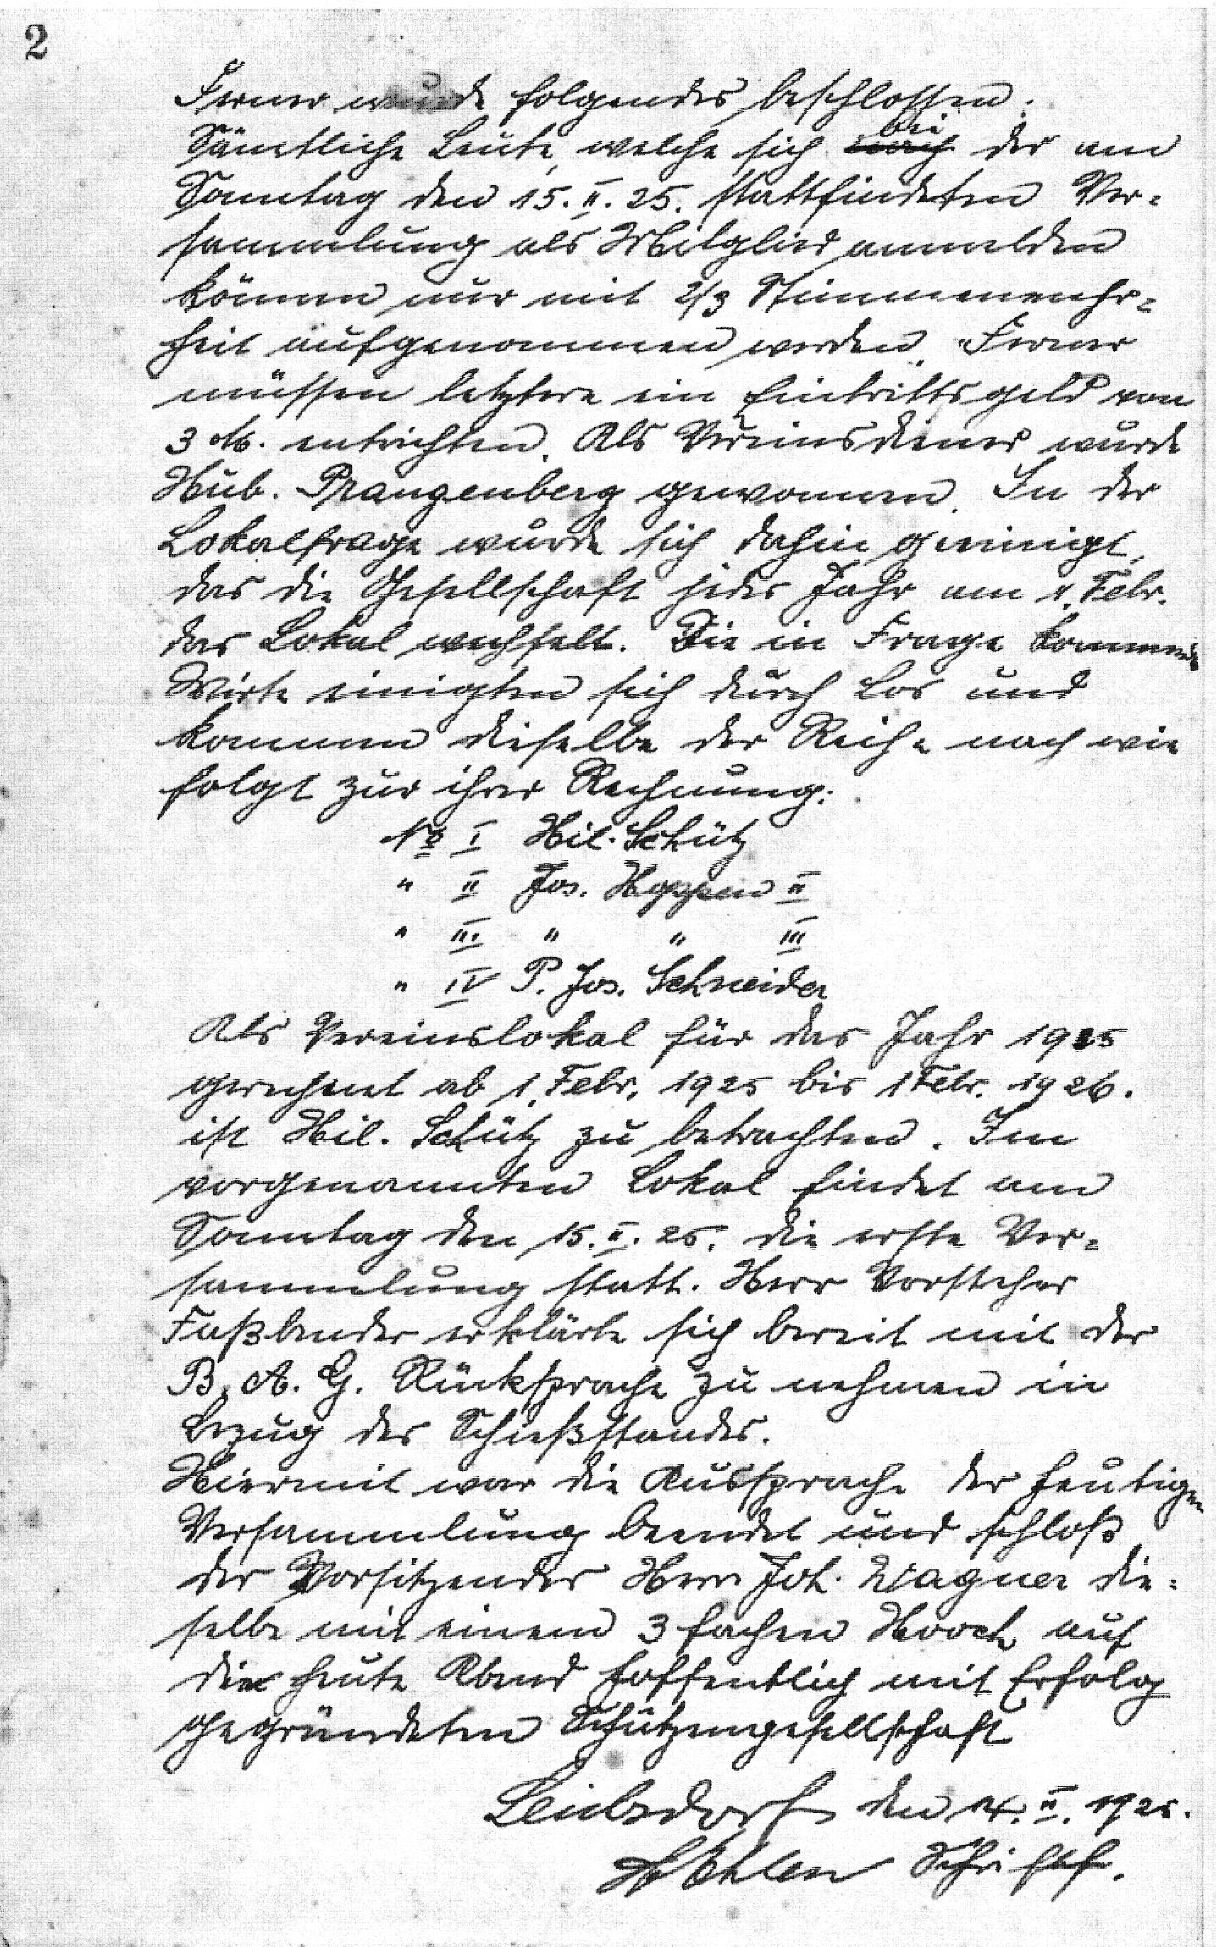 2
Ferner wurde folgendes beschlossen:
Sämtliche Leute, welche sich bei der am
Sonntag den 15. II. 25. stattfindeten Ver=
sammlung als Mitglied anmelden
können nur mit 2/3 Stimmenmehr=
heit aufgenommen werden. Ferner
müssen letztere ein Eintrittsgeld von
3 M. entrichten. Als Vereinsdiener wurde
Hub. Prangenberg gewonnen. In der
Lokalfrage wurde sich dahin geeinigt,
das die Gesellschaft jedes Jahr am 1. Febr.
das Lokal wechselt. Die in Frage kommende
Wirte einigten sich durch Los und
kommen dieselbe der Reihe nach wie
folgt zur ihrer Rechnung:
No I Hil. Schütz
" II Jos. Hoppen II
" III " " III
" IV P. Jos. Schneider
Als Vereinslokal für das Jahr 1925
gerechent ab 1. Febr. 1925 bis 1 Febr. 1926.
ist Hil. Schütz zu betrachten. Im
vorgenannten Lokal findet am
Sonntag den 15. II. 25. die erste Ver=
sammlung statt. Herr Vorsteher
Faßbender erklärte sich bereit mit der
B. A. G. Rücksprache zu nehmen in
Bezug des Schießstandes.
Hiermit war die Aussprache der heutigen
Versammlung beendet und schloß
der Vorsitzender Herr Joh. Wagner die=
selbe mit einem 3 fachen Hooch auf
die heute Abend hoffentlich mit Erfolg
gegründeten Schützengesellschaft
den 14. II. 1925.
Ehlen Schriftf.